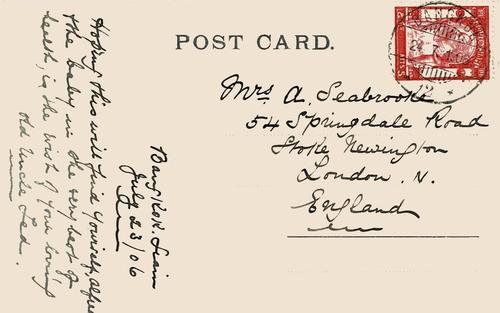 POST CARD.
Hoping this will find yourself, Alfred
the baby in the very best of
health, is the wish of your loving
old Uncle Ted.
Bangkok. Siam
July 23/06
Mrs A. Seabrooke
54 Springdale Road
Stoke Newington
London. N.
England